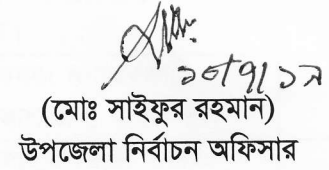 ১০/৭/১৯
(মোঃ সাইফুর রহমান)
উপজেলা নির্বাচন অফিসার